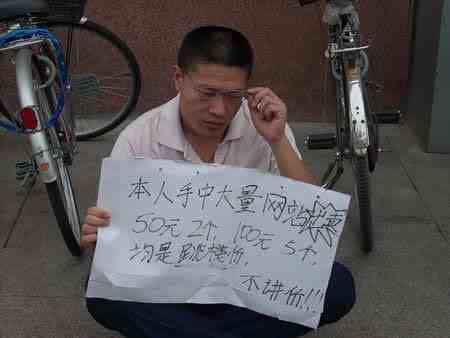 本人手中大量网站
50元2个,100元5个,
均是跳楼价,
不讲价!!!